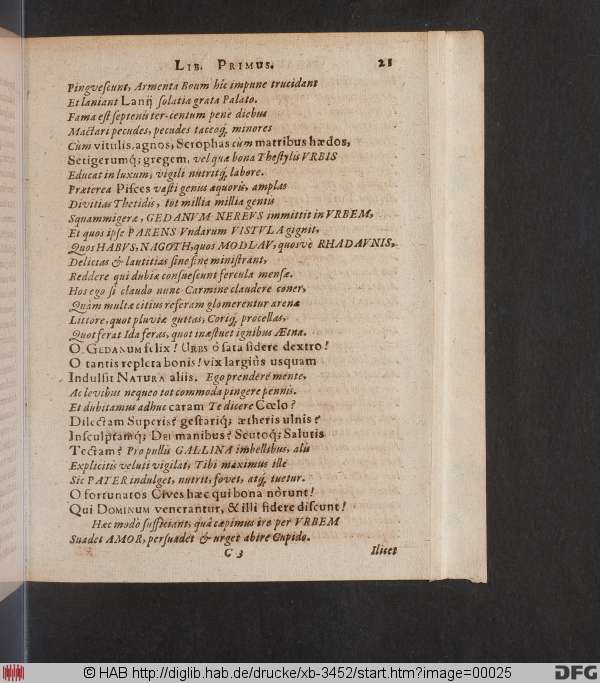 LIB. PRIMUS. 21
Pingvescunt, Armenta Boum hîc impune trucidant
Et laniant Lanij solatia grata Palato.
Fama est septenis ter-centum pene diebus
Mactari pecudes, pecudes taceoq́; minores
Cùm vitulis, agnos, Scrophas cùm matribus hædos,
Setigerumq́; gregem, vel quæ bona Thestylis VRBIS
Educat in luxum, vigili nutritq́; labore.
Præterea Pisces vasti genius æquoris, amplas
Divitias Thetidis, tot millia millia gentis
Squammigeræ, GEDANVM NEREVS immittit in VRBEM,
Et quos ipse PARENS Vndarum VISTVLA gignit,
Quos HABVS, NAGOTH, quos MODLAV, quosvè RHADAVNIS,
Delicias & lautitias sine fine ministrant,
Reddere qui dubiæ consuescunt fercula mensæ.
Hos ego si claudo nunc Carmine claudere coner,
Quàm multæ citius referam glomerentur arenæ
Littore, quot pluviæ guttas, Coriq́; procellas,
Quot ferat Ida feras, quot inæstuet ignibus Ætna.
O GEDANUM felix! URBS ô fata sidere dextro!
O tantis repleta bonis! vix largiùs usquam
Indulsit NATURA aliis. Ego prendere mente,
Ac levibus nequeo tot commoda pingere pennis.
Et dubitamus adhuc caram Te dicere Cœlo?
Dilectam Superis? gestariq́; ætheris ulnis?
Insculptamq́; DEI manibus? Scutoq́; Salutis
Tectam? Pro pullis GALLINA imbellibus, alis
Explicitis veluti vigilat, Tibi maximus ille
Sic PATER indulget, nutrit, fovet, atq́; tuetur.
O fortunatos Cives hæc qui bona nôrunt!
Qui DOMINUM venerantur, & illi fidere discunt!
Hæc modò sufficiant, quà cæpimus ire per VRBEM
Suadet AMOR, persuadet & urget abire Cupido.
C 3 Ilicet
© HAB http://diglib.hab.de/drucke/xb-3452/start.htm?image=00025
DFG